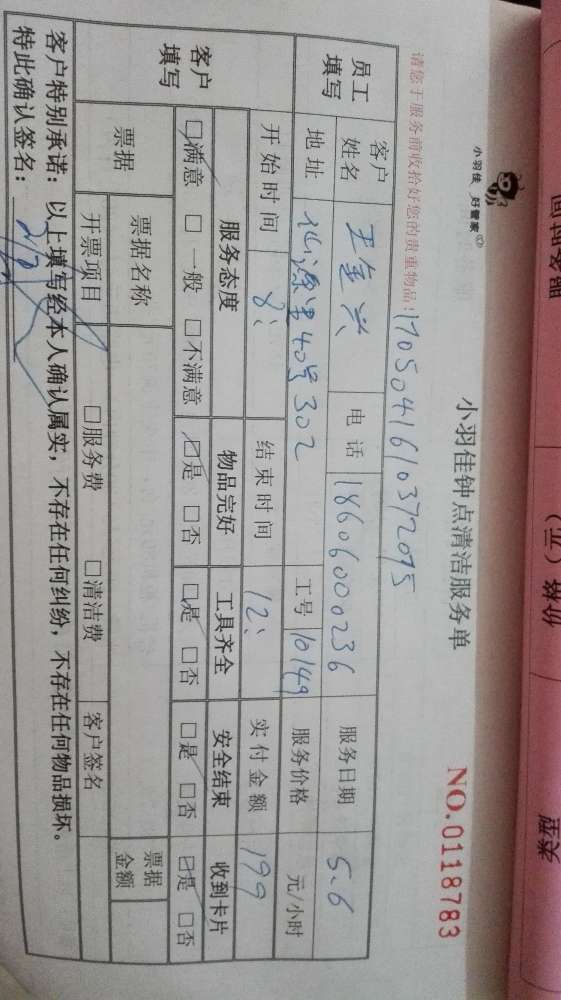 服务时间
价格（元）
类型
小羽佳 好管家
小羽佳钟点清洁服务单
NO.0118783
请您于服务前收拾好您的贵重物品!
170504161037 2075
员工填写
客户姓名
王金兴
电话
18606000236
服务日期
5.6
地址
40号302
工号
10149
服务价格
元/小时
客户填写
开始时间
8:
结束时间
12:
实付金额
199
服务态度
物品完好
工具齐全
安全结束
收到卡片
□满意 □一般 □不满意
□是 □否
□是 □否
□是 □否
□是 □否
票据
票据名称
票据金额
开票项目
□服务费 □清洁费
客户签名
客户特别承诺：以上填写经本人确认属实，不存在任何纠纷，不存在任何物品损坏。
特此确认签名：